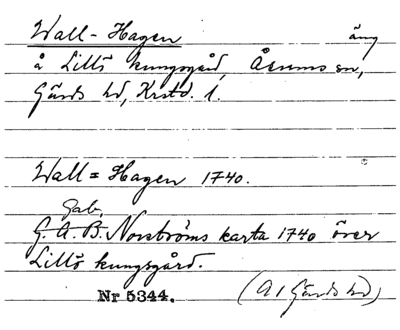 Wall-Hagen äng
å Lillö kungsgård, Åsums sn,
Gärds hd, Krstd. l.
Wall = Hagen 1740.
Gab.
G. A. B. Norströms karta 1740 över
Lillö kungsgård.
Nr 5344. (A 1 Gärds hd)